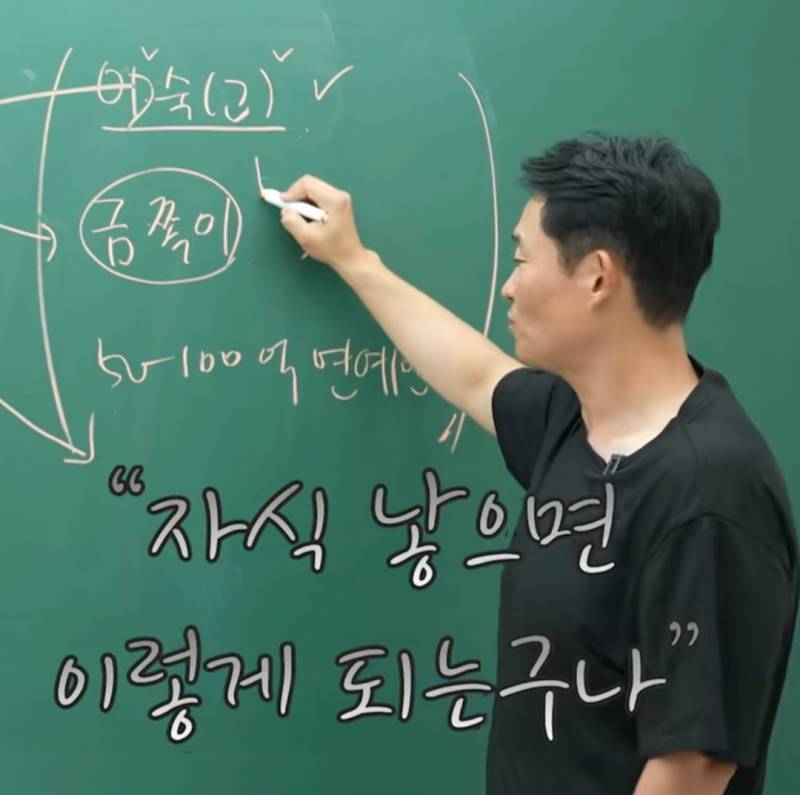 압숙(고)
금쪽이
50-100억 연예인
“자식 낳으면
이렇게 되는구나”